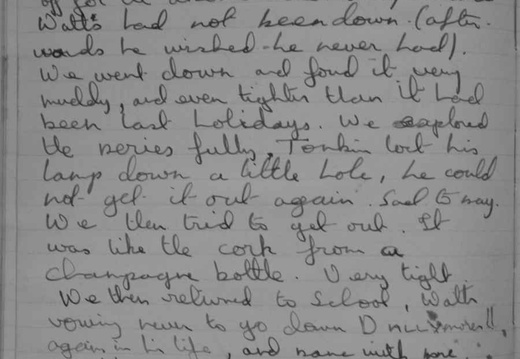 off for the
Watts had not been down. (after-
wards he wished he never had).
We went down and found it very
muddy, and even tighter than it had
been last holidays. We explored
the series fully. Tonkin lost his
lamp down a little hole, he could
not get it out again. Sad to say.
We then tried to get out. It
was like the cork from a
champagne bottle. Very tight
We then returned to School, Watts
vowing never to go down
again in his life, and